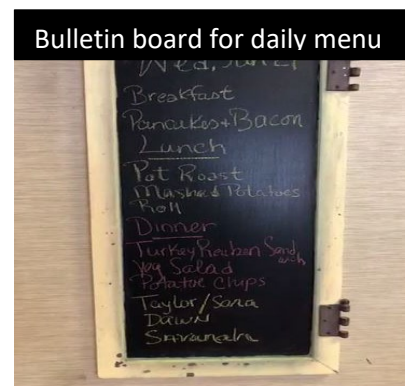 Bulletin board for daily menu
Wed, Jun 21
Breakfast
Pancakes + Bacon
Lunch
Pot Roast
Mashed Potatoes
Roll
Dinner
Turkey Reuben Sandwich
Veg Salad
Potatoe Chips
Taylor/Sara
Dawn